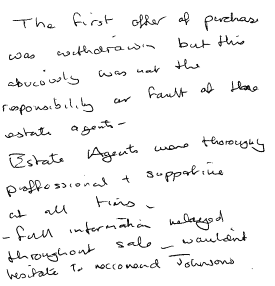 The first offer of purchase
was withdrawn but this
obviously was not the
responsibility or fault of these
estate agents -
Estate Agents were thoroughly
proffessional + supportive
at all times -
- full information relayed
throughout sale - wouldn't
hesitate to reccomend Johnsons